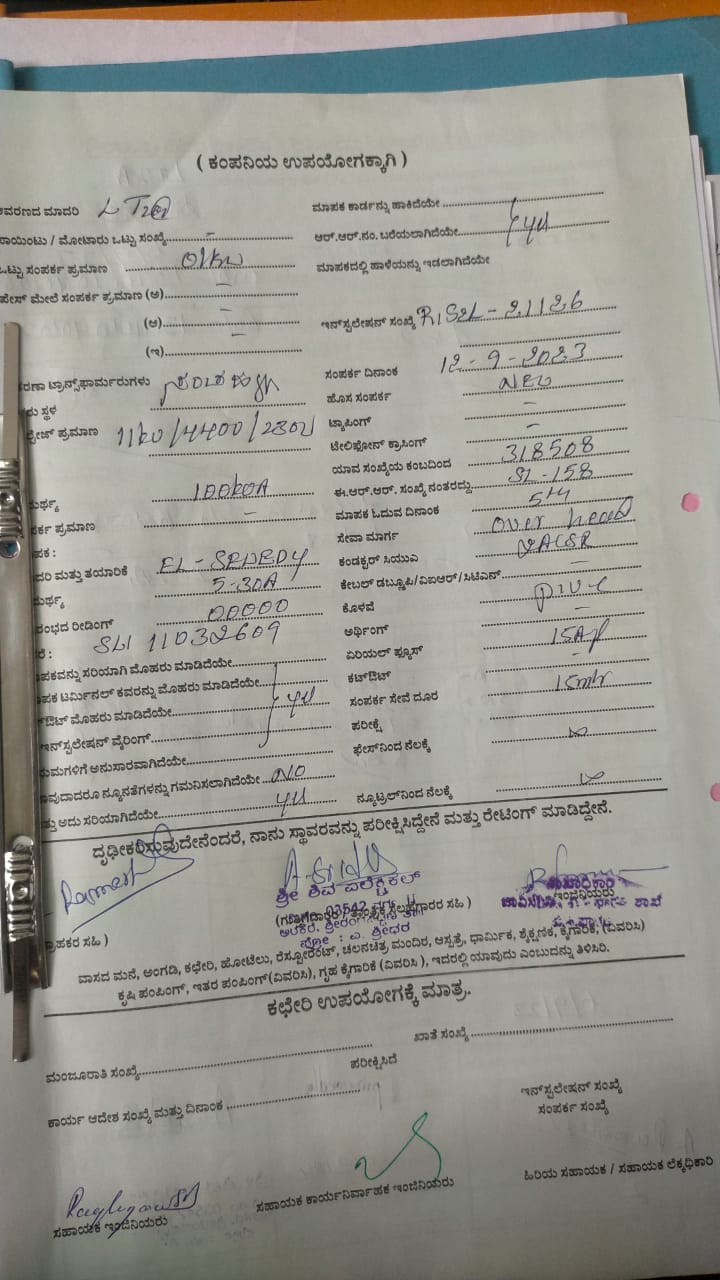 ( ಕಂಪನಿಯ ಉಪಯೋಗಕ್ಕಾಗಿ )
ಆವರಣದ ಮಾದರಿ LT2 ಮಾಪಕ ಕಾರ್ಡನ್ನು ಹಾಕಿದೆಯೇ
ಪಾಯಿಂಟು / ಮೋಟಾರು ಒಟ್ಟು ಸಂಖ್ಯೆ - ಆರ್.ಆರ್.ನಂ. ಬರೆಯಲಾಗಿದೆಯೇ
ಒಟ್ಟು ಸಂಪರ್ಕ ಪ್ರಮಾಣ 01kw ಮಾಪಕದಲ್ಲಿ ಹಾಳೆಯನ್ನು ಇಡಲಾಗಿದೆಯೇ
ಫೇಸ್ ಮೇಲೆ ಸಂಪರ್ಕ ಪ್ರಮಾಣ (ಅ) -
(ಆ) - ಇನ್‌ಸ್ಟಲೇಷನ್ ಸಂಖ್ಯೆ RISZL - 21126
(ಇ) -
ಸಂಪರ್ಕ ದಿನಾಂಕ 12-9-2023
ರಣಾ ಟ್ರಾನ್ಸ್‌ಫಾರ್ಮರುಗಳು
ಹೊಸ ಸಂಪರ್ಕ NEW
ರು ಸ್ಥಳ
ಟ್ಯಾಪಿಂಗ್ -
ಪ್ರಮಾಣ 11kv/4400/230V
ಟೆಲಿಫೋನ್ ಕ್ರಾಸಿಂಗ್ -
ಯಾವ ಸಂಖ್ಯೆಯ ಕಂಬದಿಂದ 318508
100KVA ಈ.ಆರ್.ಆರ್. ಸಂಖ್ಯೆ ನಂತರದ್ದು SL-158
ಪರ್ಕ ಪ್ರಮಾಣ - ಮಾಪಕ ಓದುವ ದಿನಾಂಕ 5th
ಪಕ : ಸೇವಾ ಮಾರ್ಗ Over head
ದರಿ ಮತ್ತು ತಯಾರಿಕೆ ಕಂಡಕ್ಟರ್ ಸಿಯುಎ
5-30A ಕೇಬಲ್ ಡಬ್ಲೂಪಿ/ವಿಐಆರ್/ಸಿಟಿಎಸ್ -
ರಂಭದ ರೀಡಿಂಗ್ 00000 ಕೊಳವೆ
SLI 11032609 ಅರ್ಥಿಂಗ್ -
ಪಕವನ್ನು ಸರಿಯಾಗಿ ಮೊಹರು ಮಾಡಿದೆಯೇ ಏರಿಯಲ್ ಫ್ಯೂಸ್
ಪಕ ಟರ್ಮಿನಲ್ ಕವರನ್ನು ಮೊಹರು ಮಾಡಿದೆಯೇ ಕಟ್‌ಔಟ್ -
ಔಟ್ ಮೊಹರು ಮಾಡಿದೆಯೇ ಸಂಪರ್ಕ ಸೇವೆ ದೂರ 15mtr
ಇನ್‌ಸ್ಟಲೇಷನ್ ವೈರಿಂಗ್ ಪರೀಕ್ಷೆ
ಯಮಗಳಿಗೆ ಅನುಸಾರವಾಗಿದೆಯೇ ಫೇಸ್‌ನಿಂದ ನೆಲಕ್ಕೆ
ವುದಾದರೂ ನ್ಯೂನತೆಗಳನ್ನು ಗಮನಿಸಲಾಗಿದೆಯೇ NO
ತ್ತು ಅದು ಸರಿಯಾಗಿದೆಯೇ ನ್ಯೂಟ್ರಲ್‌ನಿಂದ ನೆಲಕ್ಕೆ
ದೃಢೀಕರಿಸುವುದೇನೆಂದರೆ, ನಾನು ಸ್ಥಾವರವನ್ನು ಪರೀಕ್ಷಿಸಿದ್ದೇನೆ ಮತ್ತು ರೇಟಿಂಗ್ ಮಾಡಿದ್ದೇನೆ.
Ramesh
ಶ್ರೀ ಶಿವ ಎಲೆಕ್ಟ್ರಿಕಲ್
ಗ್ರಾಹಕರ ಸಹಿ ) ಇಂಜಿನಿಯರು
ವಾಸದ ಮನೆ, ಅಂಗಡಿ, ಕಛೇರಿ, ಹೋಟೆಲು, ರೆಸ್ಟೋರೆಂಟ್, ಚಲನಚಿತ್ರ ಮಂದಿರ, ಆಸ್ಪತ್ರೆ, ಧಾರ್ಮಿಕ, ಶೈಕ್ಷಣಿಕ, ಕೈಗಾರಿಕೆ, (ವಿವರಿಸಿ)
ಕೃಷಿ ಪಂಪಿಂಗ್, ಇತರ ಪಂಪಿಂಗ್(ವಿವರಿಸಿ), ಗೃಹ ಕೈಗಾರಿಕೆ (ವಿವರಿಸಿ ), ಇದರಲ್ಲಿ ಯಾವುದು ಎಂಬುದನ್ನು ತಿಳಿಸಿರಿ.
ಕಛೇರಿ ಉಪಯೋಗಕ್ಕೆ ಮಾತ್ರ.
ಮಂಜೂರಾತಿ ಸಂಖ್ಯೆ ಖಾತೆ ಸಂಖ್ಯೆ
ಪರೀಕ್ಷಿಸಿದೆ
ಕಾರ್ಯ ಆದೇಶ ಸಂಖ್ಯೆ ಮತ್ತು ದಿನಾಂಕ ಇನ್‌ಸ್ಟಲೇಷನ್ ಸಂಖ್ಯೆ
ಸಂಪರ್ಕ ಸಂಖ್ಯೆ
ಸಹಾಯಕ ಇಂಜಿನಿಯರು ಸಹಾಯಕ ಕಾರ್ಯನಿರ್ವಾಹಕ ಇಂಜಿನಿಯರು ಹಿರಿಯ ಸಹಾಯಕ / ಸಹಾಯಕ ಲೆಕ್ಕಧಿಕಾರಿ